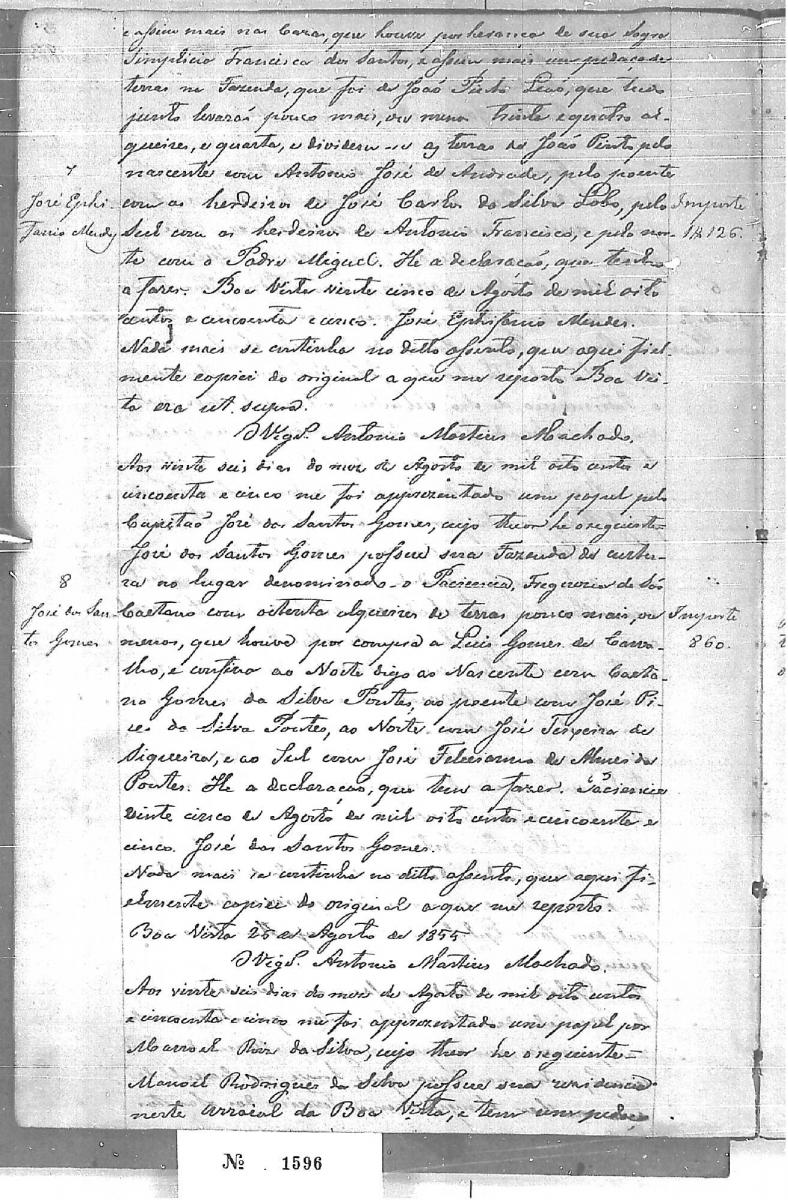 e assim mais nas Casas, que houve por herança de seu Sogro
Simplicio Francisco dos Santos, e assim mais um pedaço de
terras na Fazenda, que foi de João Pinto Leão, que tudo
junto levará pouco mais, ou menos trinta e quatro al-
queires, e quarta, e dividem-se as terras do João Pinto pelo
nascente com Antonio José de Andrade, pelo poente
com os herdeiros de José Carlos da Silva Lobo, pelo
Sul com os herdeiros de Antonio Francisco, e pelo nor-
te com o Padre Miguel. He a declaração, que tenho
a fazer. Boa Vista vinte cinco de Agosto de mil oito
centos e cincoenta e cinco. José Ephifanio Mendes.
Nada mais se continha no ditto assento, que aqui fiel-
mente copiei do original a que me reporto Boa Vis-
ta era ut supra.
O Vigr.º Antonio Martins Machado.
Aos vinte seis dias do mez de Agosto de mil oito centos e
cincoenta e cinco me foi apprezentado um papel pelo
Capitão José dos Santos Gomes, cujo theor he o seguinte-
José dos Santos Gomes possue sua Fazenda de cultu-
ra no lugar denominado - o Paciencia, Freguezia de São
Caetano com oitenta alqueires de terras pouco mais, ou
menos, que houve por compra a Luis Gomes de Carva-
lho, e confina ao Norte digo ao Nascente com Caeta-
no Gomes da Silva Pontes, ao poente com José Pi-
res da Silva Pontes, ao Norte com José Teixeira de
Siqueira, e ao Sul com José Feliciano de Almeida
Pontes. He a declaração, que tem a fazer. Paciencia
vinte cinco de Agosto de mil oito centos e cincoenta e
cinco. José dos Santos Gomes.
Nada mais se continha no ditto assento, que aqui fi-
elmente copiei do original a que me reporto.
Boa Vista 26 de Agosto de 1855
O Vigr.º Antonio Martins Machado.
Aos vinte seis dias do mez de Agosto de mil oito centos
e cincoenta e cinco me foi apprezentado um papel por
Manoel Roiz da Silva, cujo theor he o seguinte=
Manoel Rodrigues da Silva possue sua rezidencia
neste Arraial da Boa Vista, e tem um pedaço
7
José Ephi-
fanio Mendes
Importe
1$126.
8
José dos San-
tos Gomes
Importe
860.
Nº 1596